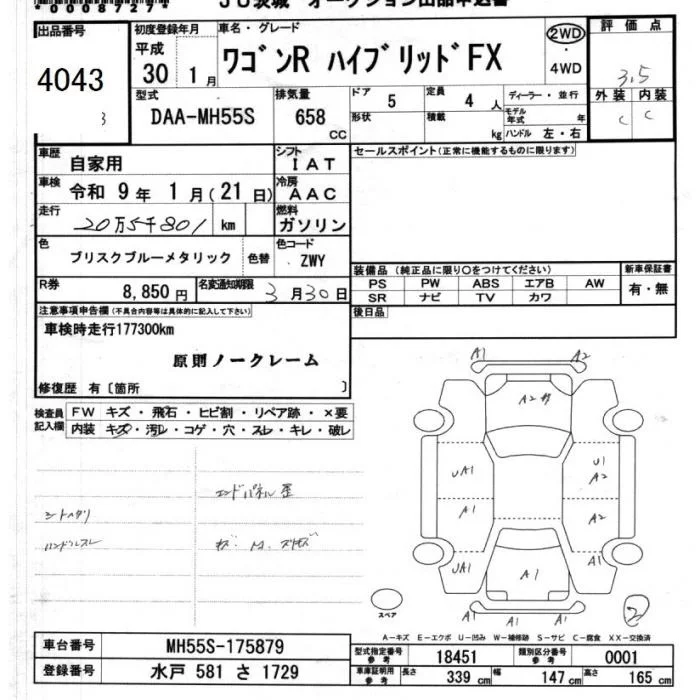 *00087277*
JU茨城 オークション出品申込書
出品番号
4043
3
初度登録年月
平成
30 1 月
車名・グレード
ワゴンR ハイブリッドFX
2WD
・
4WD
評価点
3.5
外装 内装
C C
型式
DAA-MH55S
排気量
658
CC
ドア 5
定員 4 人
形状
積載 kg
ディーラー・並行
モデル年式 年
ハンドル 左・右
車歴 自家用
シフト IAT
車検 令和 9 年 1 月(21 日)
冷房 AAC
走行 20万5千801 km
燃料 ガソリン
色 ブリスクブルーメタリック 色替
色コード ZWY
R券 8,850 円
名変通知期限 3 月 30 日
セールスポイント(正常に機能するものに限ります)
装備品(純正品に限り○をつけてください)
PS PW ABS エアB AW
SR ナビ TV カワ
新車保証書
有・無
後日品
注意事項申告欄(不具合内容等は具体的に記入して下さい)
車検時走行177300km
原則ノークレーム
修復歴 有〔箇所 〕
検査員記入欄
FW キズ・飛石・ヒビ割・リペア跡・×要
内装 キズ・汚レ・コゲ・穴・スレ・キレ・破レ
エンドパネル歪
シートヘタリ
ハンドルスレ
A1 A2
A2
UA1 U1 A2
A1 A2
UA1 A1
A1
A1 A1 A1
スペア
2
A-キズ E-エクボ U-凹み W-補修跡 S-サビ C-腐食 XX-交換済
車台番号 MH55S-175879
登録番号 水戸 581 さ 1729
型式指定番号 参考 18451
類別区分番号 参考 0001
車庫証明用 参考 長さ 339 cm 幅 147 cm 高さ 165 cm